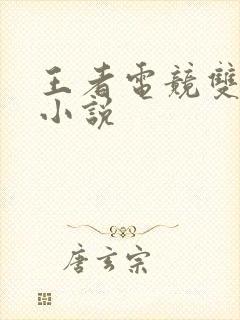 王者電競雙
小説
唐玄宗